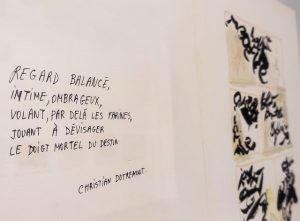 REGARD BALANCÉ,
INTIME, OMBRAGEUX,
VOLANT, PAR DELÀ LES FARINES,
JOUANT À DÉVISAGER
LE DOIGT MORTEL DU DESTIN
CHRISTIAN DOTREMONT.